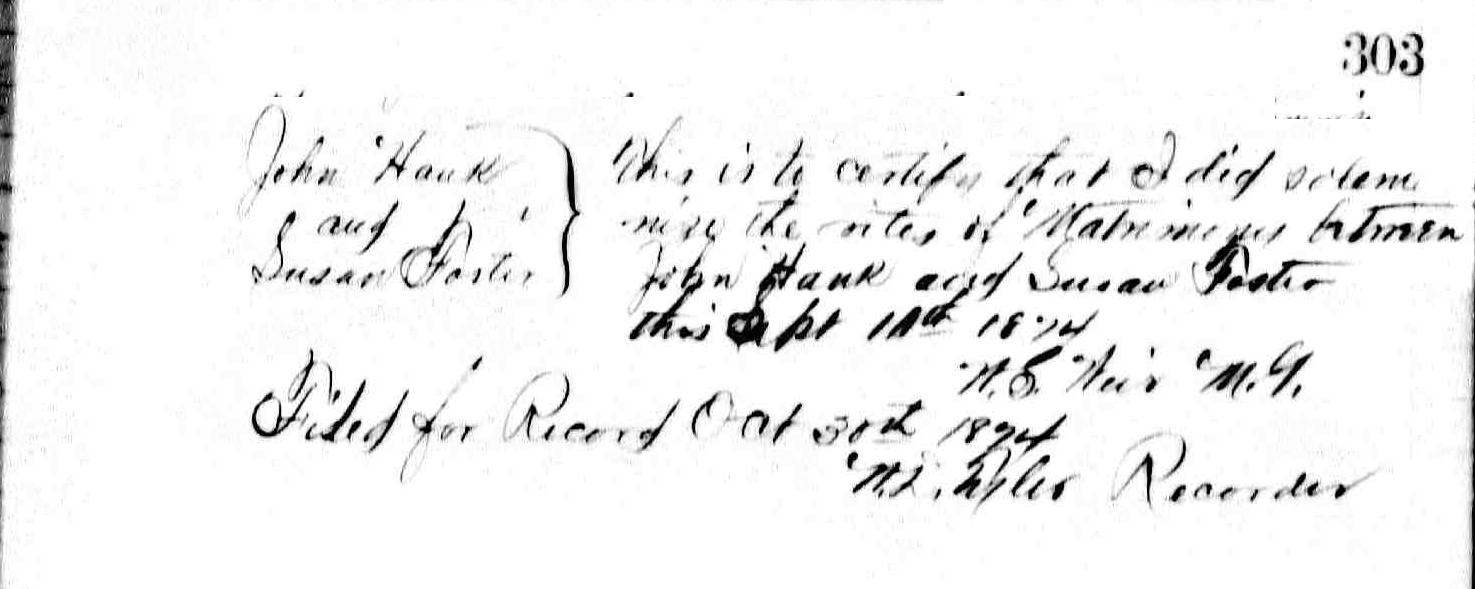 303
John Hauk
and
Susan Foster
This is to certify that I did solem
nize the rites of Matrimony between
John Hauk and Susan Foster
this Sept 10th 1874
Weir M.G.
Filed for Record Oct 30th 1874
Tyler Recorder